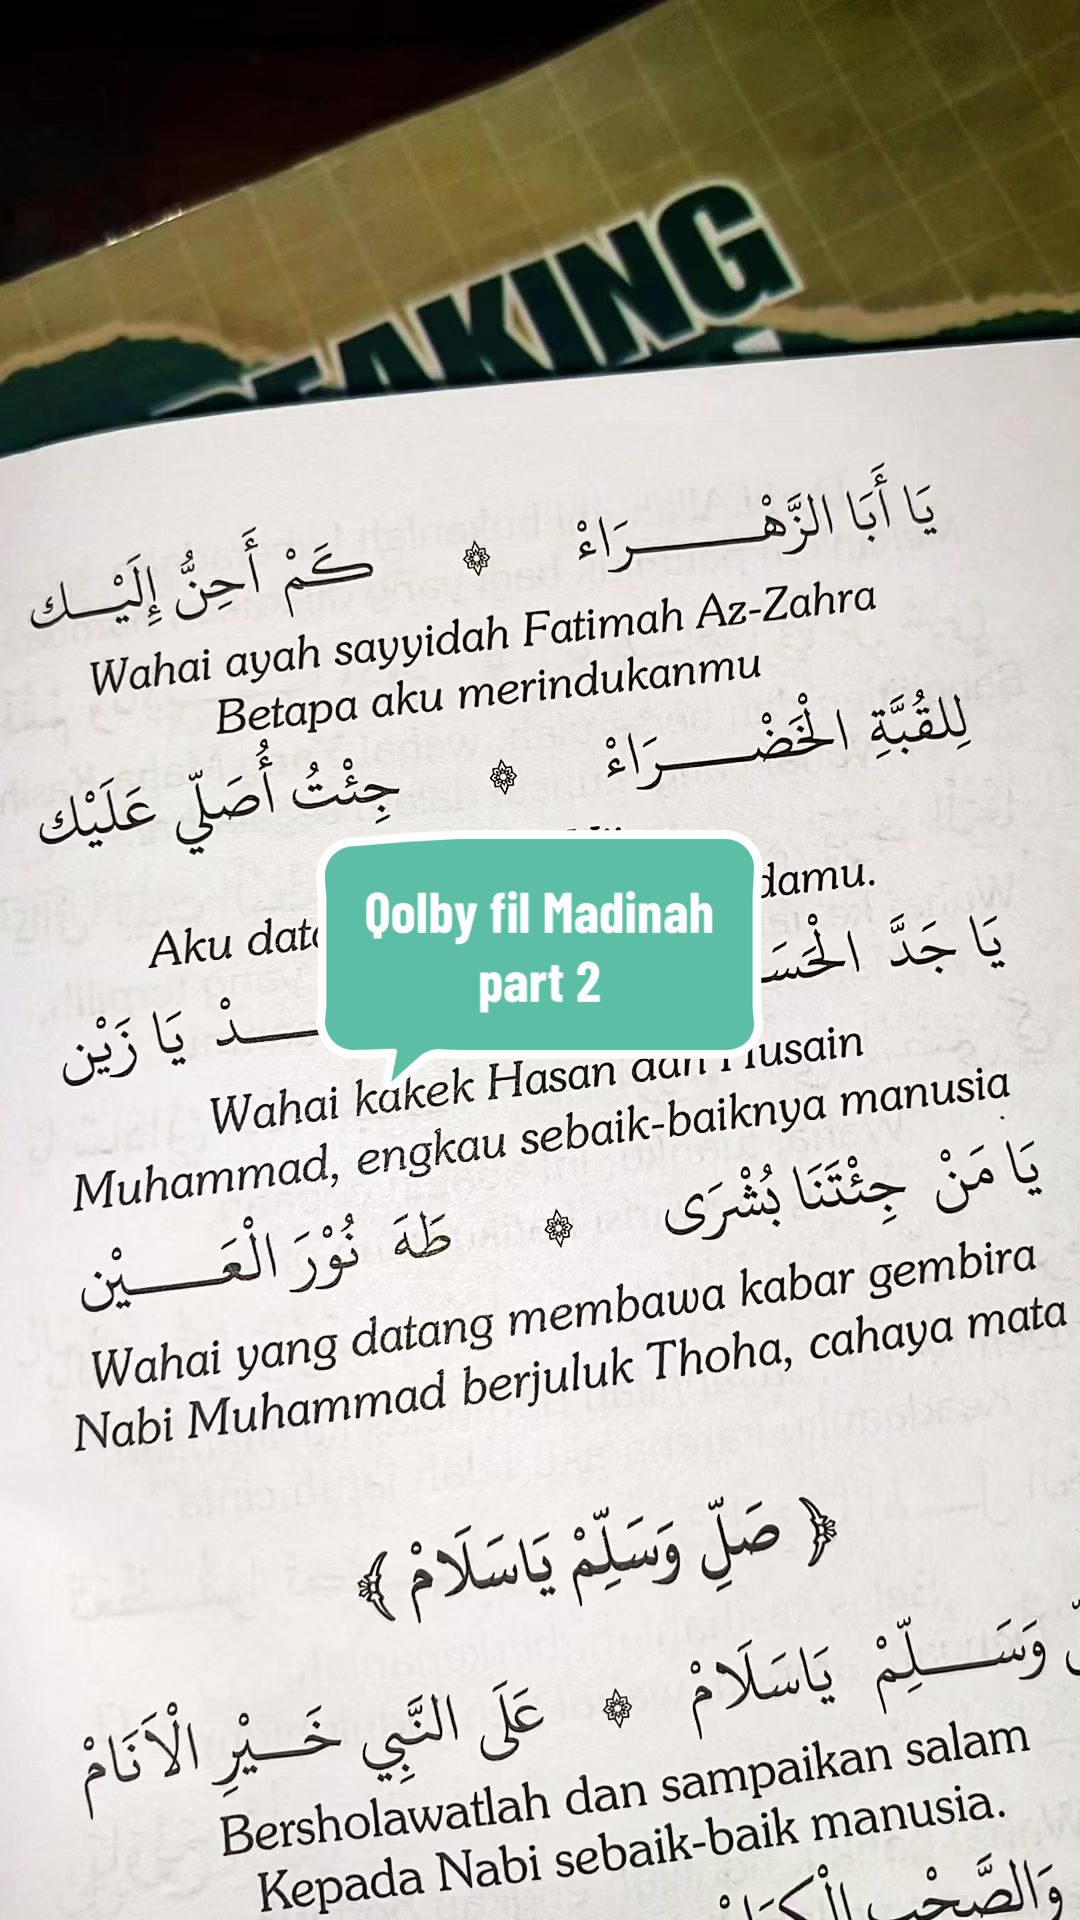 BREAKING
يَا أَبَا الزَّهْـــرَاءْ ۞ كَمْ أَحِنُّ إِلَيْـــك
Wahai ayah sayyidah Fatimah Az-Zahra
Betapa aku merindukanmu
لِلقُبَّةِ الْخَضْـــرَاءْ ۞ جِئْتُ أُصَلِّي عَلَيْك
Aku damu.
Qolby fil Madinah
part 2
يَا جَدَّ
يَا زَيْن
Wahai kakek Hasan dan Husain
Muhammad, engkau sebaik-baiknya manusia
يَا مَنْ جِئْتَنَا بُشْرَى ۞ طَهَ نُوْرَ الْعَـــيْن
Wahai yang datang membawa kabar gembira
Nabi Muhammad berjuluk Thoha, cahaya mata
﴿ صَلِّ وَسَلِّمْ يَاسَلَامْ ﴾
وَسَـــلِّمْ يَاسَلَامْ ۞ عَلَى النَّبِي خَـــيْرِ الْاَنَامْ
Bersholawatlah dan sampaikan salam
Kepada Nabi sebaik-baik manusia.
وَالصَّحْبِ الْكِرَامْ